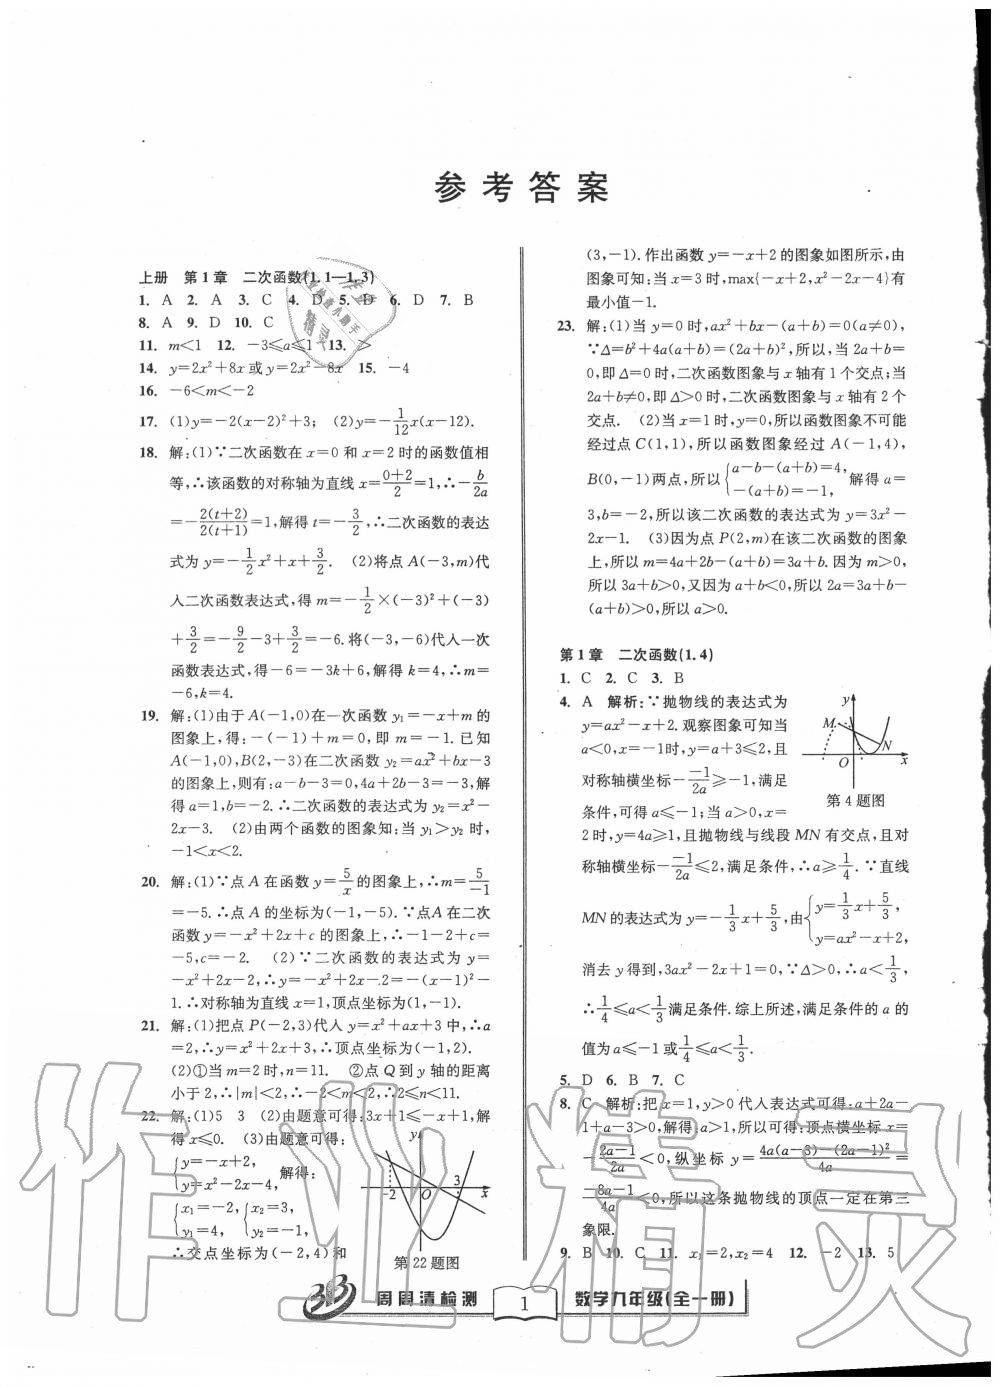 参考答案
上册　第1章　二次函数(1.1—1.3)
1. A　2. A　3. C　4. D　5. D　6. D　7. B
8. A　9. D　10. C
11. m<1　12. －3≤a≤1　13. >
14. y=2x²+8x或y=2x²－8x　15. －4
16. －6<m<－2
17. (1)y=－2(x－2)²+3；　(2)y=－1/12x(x－12).
18. 解:(1)∵二次函数在x=0和x=2时的函数值相
等,∴该函数的对称轴为直线x=(0+2)/2=1,∴－b/2a
=－2(t+2)/2(t+1)=1,解得t=－3/2,∴二次函数的表达
式为y=－1/2x²+x+3/2.　(2)将点A(－3,m)代
入二次函数表达式,得m=－1/2×(－3)²+(－3)
+3/2=－9/2－3+3/2=－6.将(－3,－6)代入一次
函数表达式,得－6=－3k+6,解得k=4,∴m=
－6,k=4.
19. 解:(1)由于A(－1,0)在一次函数y₁=－x+m的
图象上,得:－(－1)+m=0,即m=－1.已知
A(－1,0),B(2,－3)在二次函数y₂=ax²+bx－3
的图象上,则有:a－b－3=0,4a+2b－3=－3,解
得a=1,b=－2.∴二次函数的表达式为y₂=x²－
2x－3.　(2)由两个函数的图象知:当y₁>y₂时,
－1<x<2.
20. 解:(1)∵点A在函数y=5/x的图象上,∴m=5/－1
=－5.∴点A的坐标为(－1,－5).∵点A在二次
函数y=－x²+2x+c的图象上,∴－1－2+c=
－5,c=－2.　(2)∵二次函数的表达式为y=
－x²+2x－2,∴y=－x²+2x－2=－(x－1)²－
1.∴对称轴为直线x=1,顶点坐标为(1,－1).
21. 解:(1)把点P(－2,3)代入y=x²+ax+3中,∴a
=2,∴y=x²+2x+3,∴顶点坐标为(－1,2).
(2)①当m=2时,n=11.　②点Q到y轴的距离
小于2,∴|m|<2,∴－2<m<2,∴2≤n<11.
22. 解:(1)5　3　(2)由题意可得:3x+1≤－x+1,解
得x≤0.　(3)由题意可得:
{y=－x+2,
y=x²－2x－4,　解得:
{x₁=－2, {x₂=3,
y₁=4, y₂=－1.
∴交点坐标为(－2,4)和
y
－2　O　3　x
第22题图
(3,－1).作出函数y=－x+2的图象如图所示,由
图象可知:当x=3时,max{－x+2,x²－2x－4}有
最小值－1.
23. 解:(1)当y=0时,ax²+bx－(a+b)=0(a≠0),
∵Δ=b²+4a(a+b)=(2a+b)²,所以,当2a+b=
0,即Δ=0时,二次函数图象与x轴有1个交点;当
2a+b≠0,即Δ>0时,二次函数图象与x轴有2个
交点.　(2)当x=1时,y=0,所以函数图象不可能
经过点C(1,1),所以函数图象经过A(－1,4),
B(0,－1)两点,所以{a－b－(a+b)=4, －(a+b)=－1, 解得a=
3,b=－2,所以该二次函数的表达式为y=3x²－
2x－1.　(3)因为点P(2,m)在该二次函数的图象
上,所以m=4a+2b－(a+b)=3a+b.因为m>0,
所以3a+b>0,又因为a+b<0,所以2a=3a+b－
(a+b)>0,所以a>0.
第1章　二次函数(1.4)
1. C　2. C　3. B
4. A　解析:∵抛物线的表达式为
y=ax²－x+2.观察图象可知当
a<0,x=－1时,y=a+3≤2,且
对称轴横坐标－(－1)/2a≥－1,满足
条件,可得a≤－1;当a>0,x=
y
M
N
O　x
第4题图
2时,y=4a≥1,且抛物线与线段MN有交点,且对
称轴横坐标－(－1)/2a≤2,满足条件,∴a≥1/4.∵直线
MN的表达式为y=－1/3x+5/3,由{y=－1/3x+5/3, y=ax²－x+2,
消去y得到,3ax²－2x+1=0,∵Δ>0,∴a<1/3,
∴1/4≤a<1/3满足条件.综上所述,满足条件的a的
值为a≤－1或1/4≤a<1/3.
5. D　6. B　7. C
8. C　解析:把x=1,y>0代入表达式可得:a+2a－
1+a－3>0,解得:a>1,所以可得:顶点横坐标x=
－(2a－1)/2a<0,纵坐标y=(4a(a－3)－(2a－1)²)/4a=
(－8a－1)/4a<0,所以这条抛物线的顶点一定在第三
象限.
9. B　10. C　11. x₁=2,x₂=4　12. －2　13. 5
周周清检测　1　数学九年级(全一册)
作业精灵